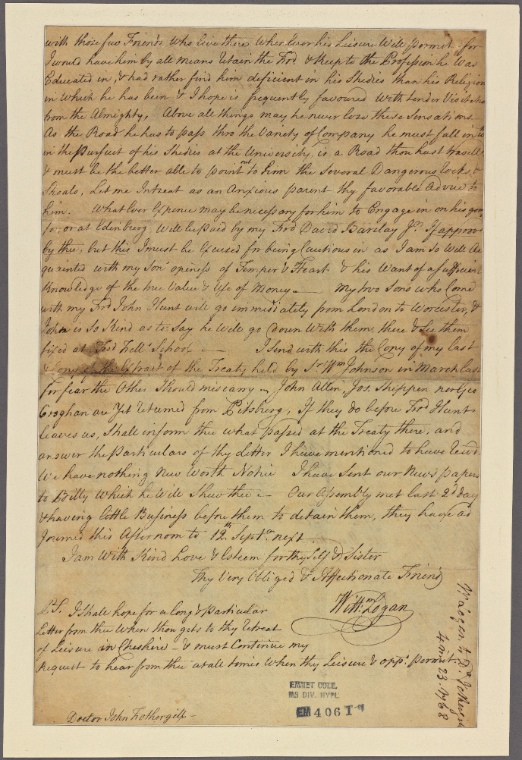 with those few Friends who live there whenever his Leisure Will permit, for
I would have him by all means Retain the Frd & keep to the Profession he Was
Educated in, & had rather find him deficient in his Studies than his Religion
in Which he has been & I hope is frequently favoured With tender Visitations
from the Almighty, Above all things may he never lose these Sensations.
As the Road he has to pass thro the Variety of Company he must fall into
in the Pursuit of his Studies at the University, is a Road thou hast travell'd
& must be the better able to point out to him the Several Dangerous rocks &
Shoals, Let me Intreat as an Anxious parent thy favorable Advice to
him. What Ever Expence may be necessary for him to Engage in on his going
to, or at Edenburg Will be paid by my Frd David Barclay Jr. If approv'd
by thee, but this I must be Excused for being Cautious in as I am So Well Ac
quainted with my Son openness of Temper & Heart & his Want of a sufficient
Knowledge of the true Value & Use of Money. My two Sons who come
with my Frd John Hunt will go immediately from London to Worcester, &
John is So Kind as to Say he Will go down With them there & See them
fixed at Frd School I Send with this the Copy of my last
& Copy of the Extract of the Treaty held by Sr. Wm Johnson in March last
for fear the Other Should miscarry John Allen Jos. Shippen nor Geo
Croghan are Yet returned from Pitsberg, If they do before Frd Hunt
leaves us, Shall inform thee what passed at the Treaty there, and
answer the Particulars of thy Letter I have mentioned to have recd
We have nothing new Worth Notice I have Sent our News papers
to Billy Which he Will Shew thee Our Assembly met last 2d day
& having little Business before them to detain them, they have ad
journed this Afternoon to 12th Septr next
I am With Kind Love & Esteem for thy Self & Sister
Thy Very Obliged & Affectionate Friend
Wm Logan
P.S. I Shall hope for a Long & particular
Letter from thee When thou gets to thy Retreat
of Leisure in Cheshire & must Continue my
request to hear from thee at all times When thy Leisure & oppy. permits
Doctor John Fothergill
Wm Logan to Dr Fothergill
4 mo 23. 1768
EMMET COLL.
MS DIV. NYPL
EM 4061